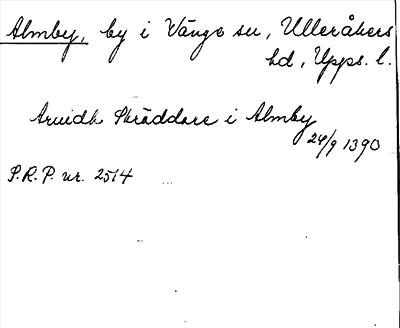 Almby, by i Vänge sn, Ulleråkers
hd, Upps. l.
Arvidh Skräddare i Almby
24/9 1390
S.R.P. nr. 2514